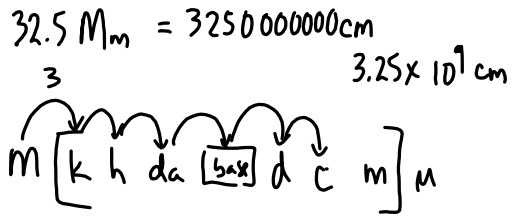 32.5 Mm = 3250000000cm
3.25 x 10⁹ cm
3
M [k h da base d c m] μ